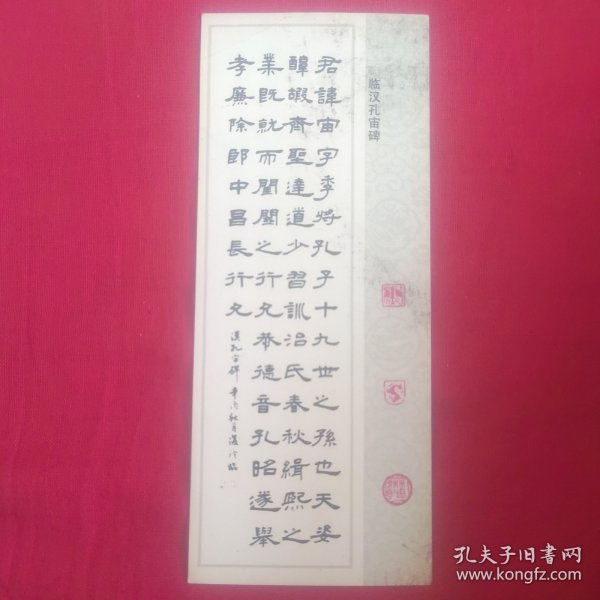 临汉孔宙碑
君諱宙字季将孔子十九世之孫也天姿
醇嘏齊聖達道少習訓治氏春秋緝熙之
業既就而閨閾之行允恭德音孔昭遂舉
孝廉除郎中昌長行允
漢孔宙碑 秋月 临
孔夫子旧书网
www.kongfz.com